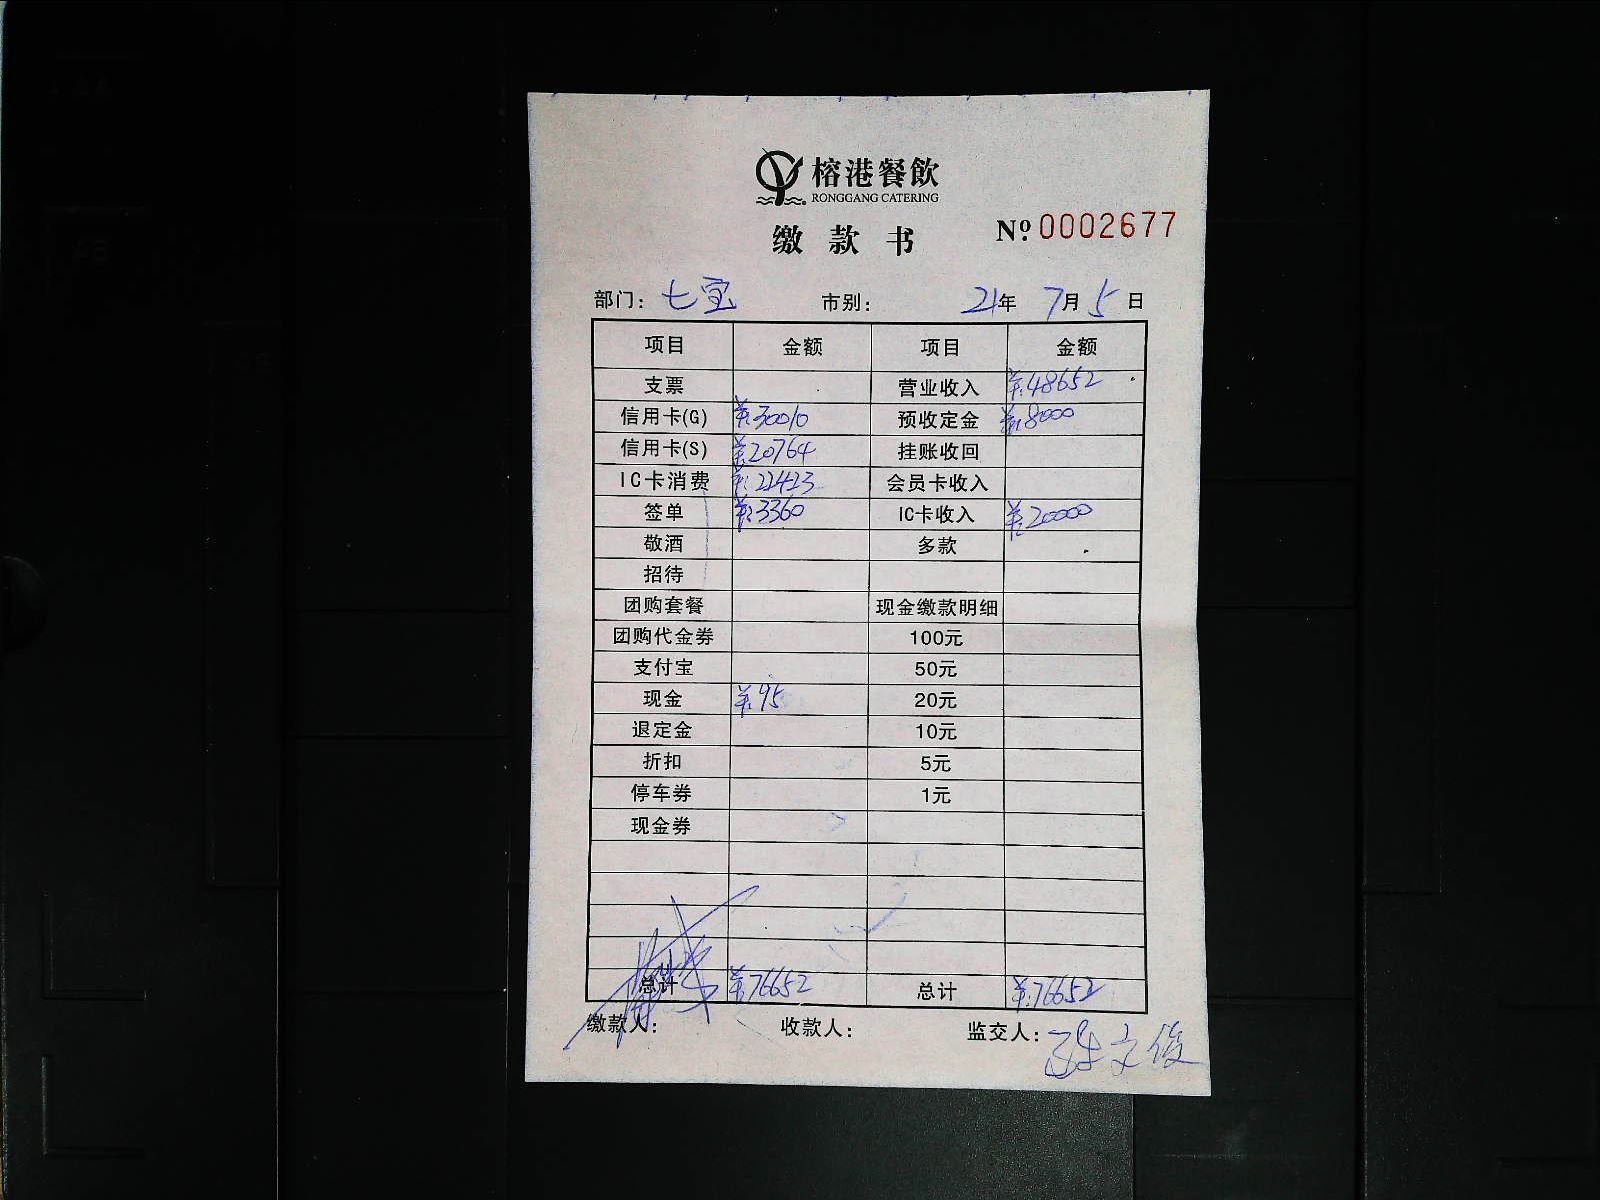 榕港餐飲
RONGGANG CATERING
缴款书 Nº 0002677
部门: 七宝 市别: 21年 7月 5日
项目 金额 项目 金额
支票 营业收入 ¥:48652
信用卡(G) ¥:30010 预收定金 ¥:8000
信用卡(S) ¥:20764 挂账收回
IC卡消费 ¥:22423 会员卡收入
签单 ¥:3360 IC卡收入 ¥:20000
敬酒 多款
招待
团购套餐 现金缴款明细
团购代金券 100元
支付宝 50元
现金 ¥:95 20元
退定金 10元
折扣 5元
停车券 1元
现金券
总计 ¥:76652 总计 ¥:76652
缴款人: 收款人: 监交人: 文俊